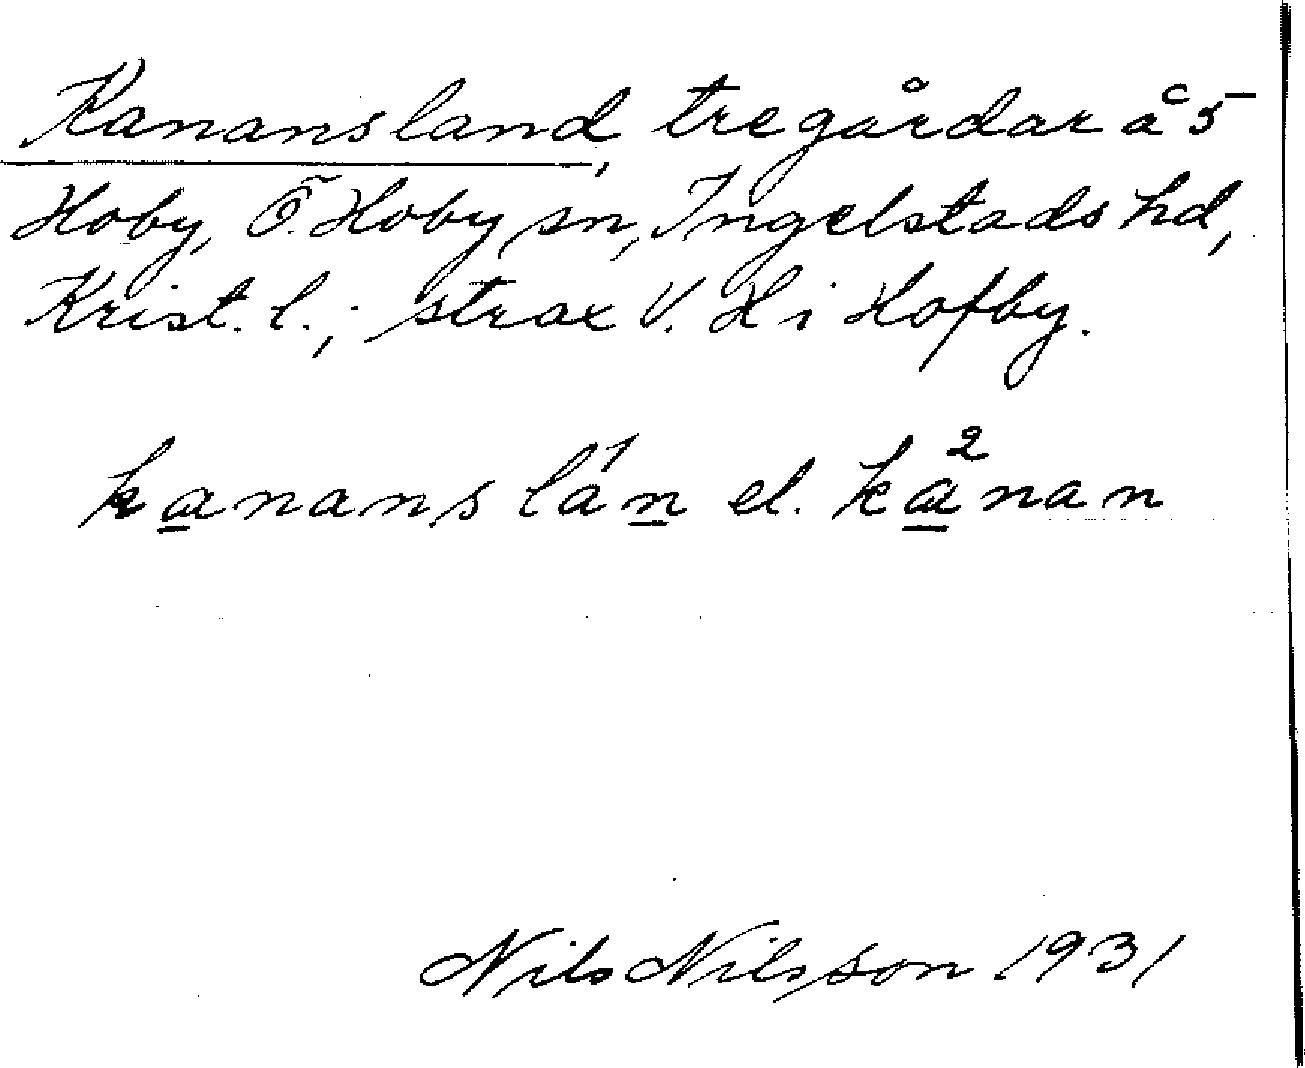 Kanansland, tre gårdar å c 5
Hoby, Ö. Hoby sn, Ingelstads hd,
Krist. l.; strax V. H i Hofby.
kananslán el. kånan
2
Nils Nilsson 1931